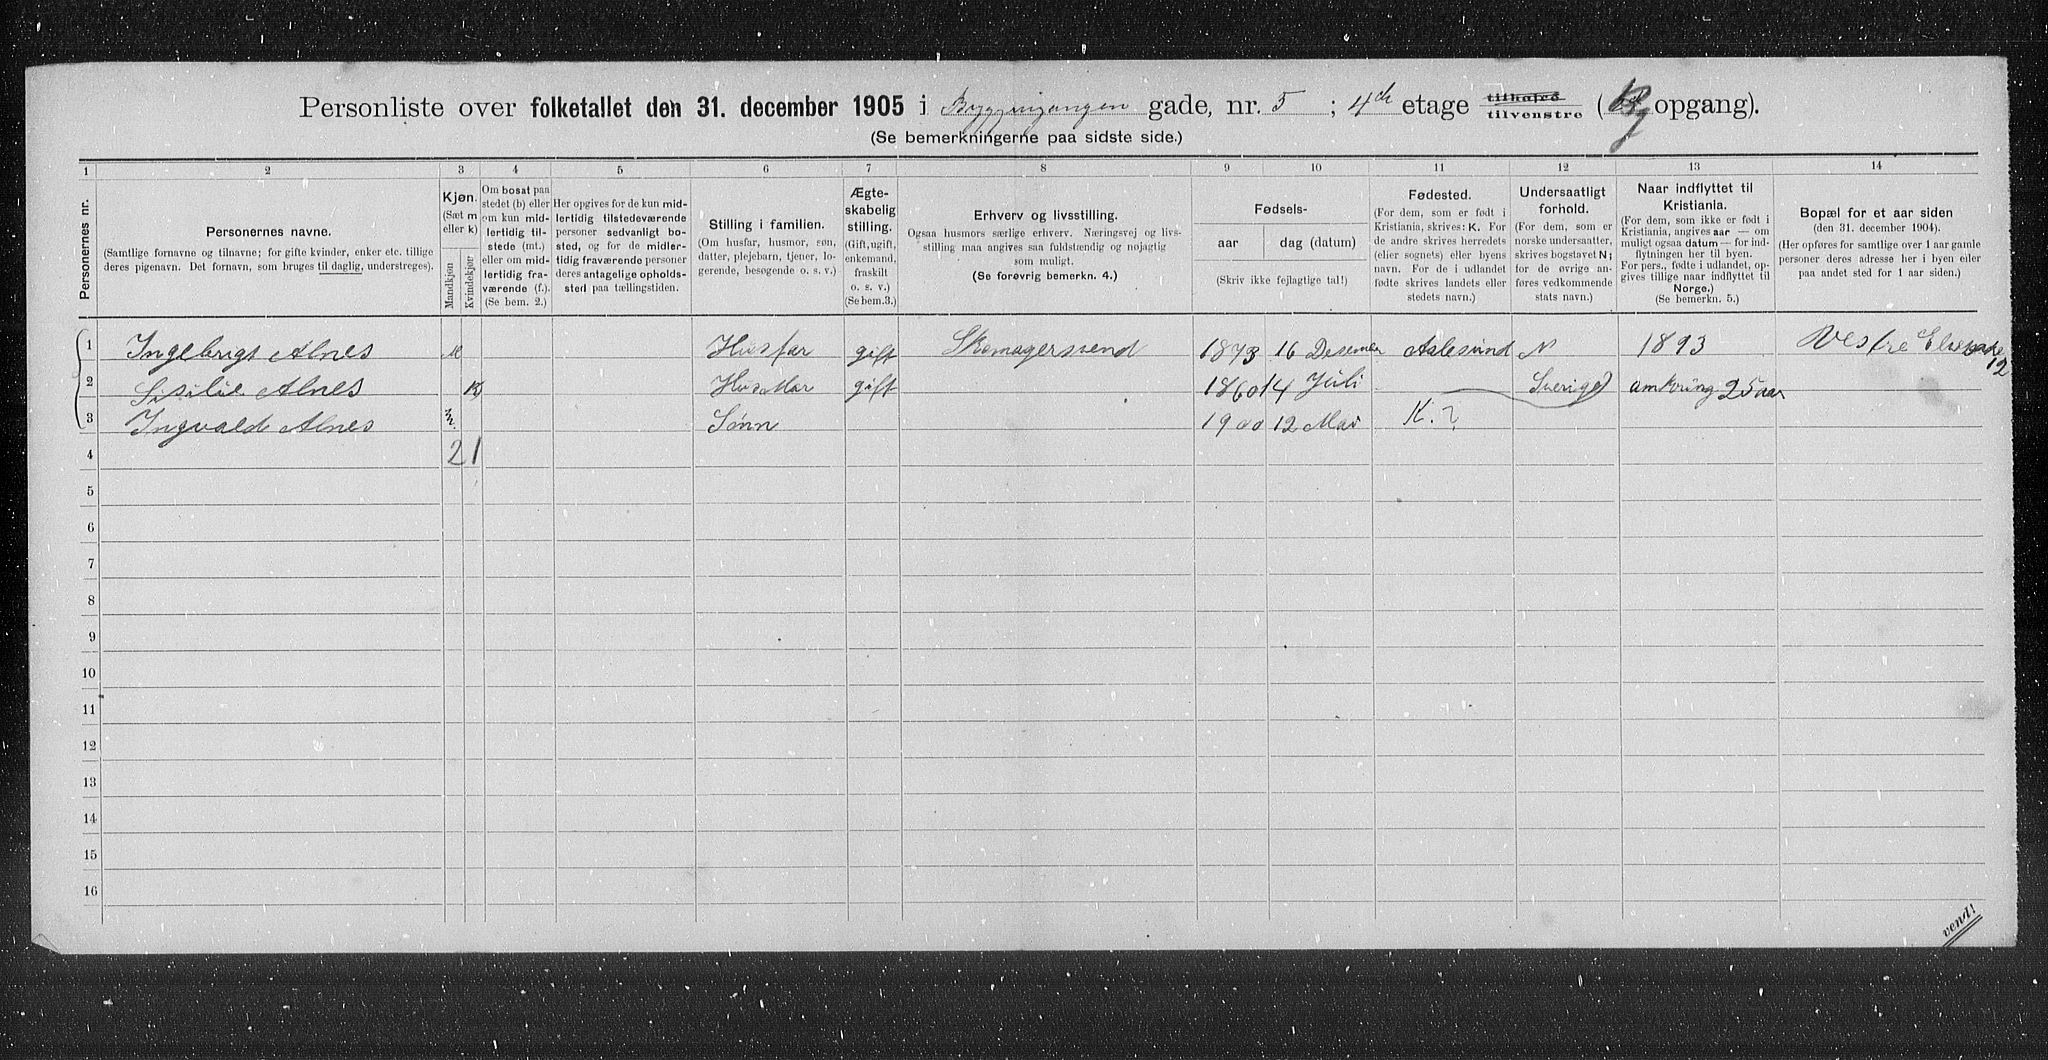 Personliste over folketallet den 31. december 1905 i Byggningangen gade, nr. 5 ; 4de etage tilhøire tilvenstre ( opgang).
(Se bemerkningerne paa sidste side.)
1 2 3 4 5 6 7 8 9 10 11 12 13 14
Personernes nr.
Personernes navne.
(Samtlige fornavne og tilnavne; for gifte kvinder, enker etc. tillige
deres pigenavn. Det fornavn, som bruges til daglig, understreges).
Kjøn.
(Sæt m
eller k)
Mandkjøn
Kvindekjør
Om bosat paa
stedet (b) eller
om kun mid-
lertidig til-
stede (mt.)
eller om mid-
lertidig fra-
værende (f.).
(Se bem. 2.)
Her opgives for de kun mid-
lertidig tilstedeværende
personer sedvanligt bo-
sted, og for de midler-
tidig fraværende personer
deres antagelige opholds-
sted paa tællingstiden.
Stilling i familien.
(Om husfar, husmor, søn,
datter, plejebarn, tjener, lo-
gerende, besøgende o. s. v.)
Ægte-
skabelig
stilling.
(Gift, ugift,
enkemand,
fraskilt
o. s. v.)
(Se bem.3.)
Erhverv og livsstilling.
Ogsaa husmors særlige erhverv. Næringsvej og livs-
stilling maa angives saa fuldstændig og nøjagtig
som muligt.
(Se forøvrig bemerkn. 4.)
Fødsels-
aar
dag (datum)
(Skriv ikke fejlagtige tal!)
Fødested.
(For dem, som er født i
Kristiania, skrives: K. For
de andre skrives herredets
(eller sognets) eller byens
navn. For de i udlandet
fødte skrives landets eller
stedets navn.)
Undersaatligt
forhold.
(For dem, som er
norske undersaatter,
skrives bogstavet N;
for de øvrige an-
føres vedkommende
stats navn.)
Naar indflyttet til
Kristiania.
(For dem, som ikke er født i
Kristiania, angives aar — om
muligt ogsaa datum — for ind-
flytningen her til byen.
For pers., fødte i udlandet, op-
gives tillige naar indflyttet til
Norge.)
(Se bemerkn. 5.)
Bopæl for et aar siden
(den 31. december 1904).
(Her opføres for samtlige over 1 aar gamle
personer deres adresse her i byen eller
paa andet sted for 1 aar siden.)
1 Ingebrigt Alnes M Husfar gift Skomagersvend 1873 16 Desemer Aalesund N 1893 Vestre Elvegade 12
2 Sisilie Alnes K HusMor gift 1860 14 Juli Sverige omkring 25 aar
3 Ingvald Alnes m. Sønn 1900 12 Mai K. ?
4 2 1
5
6
7
8
9
10
11
12
13
14
15
16
vend!